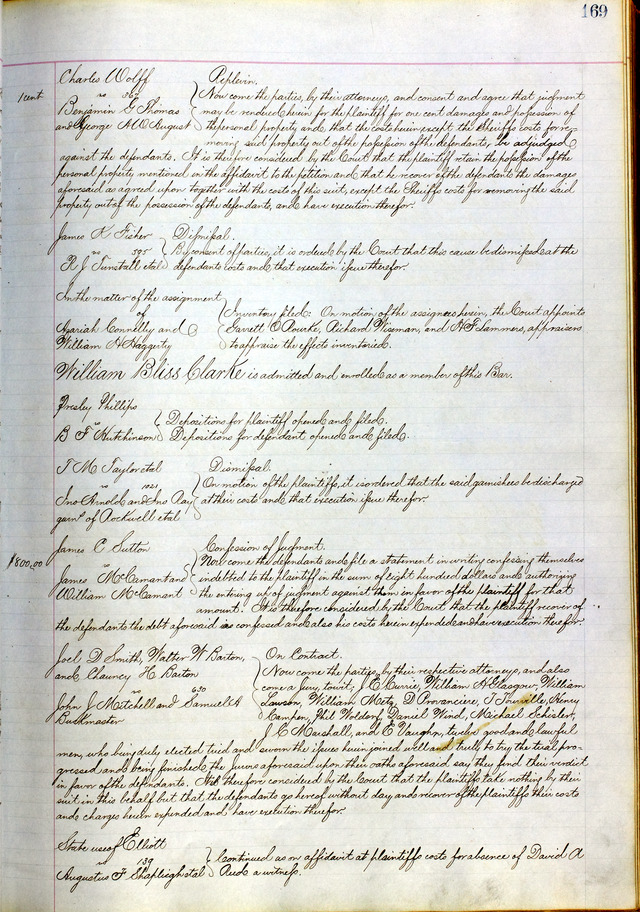 169
Charles Wolff Replevin.
1 cent vs 367 Now come the parties, by their attorneys, and consent and agree that judgment
Benjamin G Thomas may be rendered herein for the plaintiff for one cent damages and possession of
and George W August the personal property and that the costs herein except the Sheriffs costs for re-
moving said property out of the possession of the defendants, be adjudged
against the defendants. It is therefore considered by the Court that the plaintiff retain the possession of the
personal property mentioned in the affidavit to the petition and that he recover of the defendants the damages
aforesaid as agreed upon together with the costs of this suit, except the Sheriffs costs for removing the said
property out of the possession of the defendants, and have execution therefor.
James K Fisher Dismissal.
vs 595 By consent of parties, it is ordered by the Court that this cause be dismissed at the
R J Tunstall etal defendants costs and that execution issue therefor.
In the matter of the assignment
of Inventory filed: On motion of the assignees herein, the Court appoints
Azariah Connelly and Garrett O'Rourke, Richard Wiseman, and H F Lammers, appraisers
William H Haggerty to appraise the effects inventoried.
William Bliss Clarke is admitted and enrolled as a member of this Bar.
Presley Phillips
vs Depositions for plaintiff opened and filed.
B F Hutchinson Depositions for defendant opened and filed.
T M Taylor etal Dismissal.
vs 1021 On motion of the plaintiffs, it is ordered that the said garnishees be discharged
Jno Arnold and Jno Ray at their costs and that execution issue therefor.
garns of Rockwell etal
James C Sutton Confession of Judgment.
$800.00 vs Now come the defendants and file a statement in writing confessing themselves
James McCamant and indebted to the plaintiff in the sum of eight hundred dollars and authorizing
William McCamant the entering up of judgment against them in favor of the plaintiff for that
amount. It is therefore considered by the Court that the plaintiff recover of
the defendants the debt aforesaid as confessed and also his costs herein expended and have execution therefor.
Joel D Smith, Walter W Barton, On Contract.
and Chauncy H Barton Now come the parties, by their respective attorneys, and also
vs 630 come a Jury, towit; J E Currie, William H Glasgow, William
John J Mitchell and Samuel A Lawson, William Metz, D Provenciere, J Tourville, Henry
Buckmaster Kamphen, Phil Wolden, Daniel Wind, Michael Schister,
J C Marshall, and E Vaughn, twelve good and lawful
men, who being duly elected tried and sworn the issues herein joined well and truly to try the trial pro-
gressed and being finished the Jurors aforesaid upon their oaths aforesaid say they find their verdict
in favor of the defendants. It is therefore considered by the Court that the plaintiffs take nothing by their
suit in this behalf but that the defendants go hereof without day and recover of the plaintiffs their costs
and charges herein expended and have execution therefor.
State use of Elliott
vs 139 Continued as on affidavit at plaintiffs costs for absence of David A
Augustus F Shapleigh etal a witness.